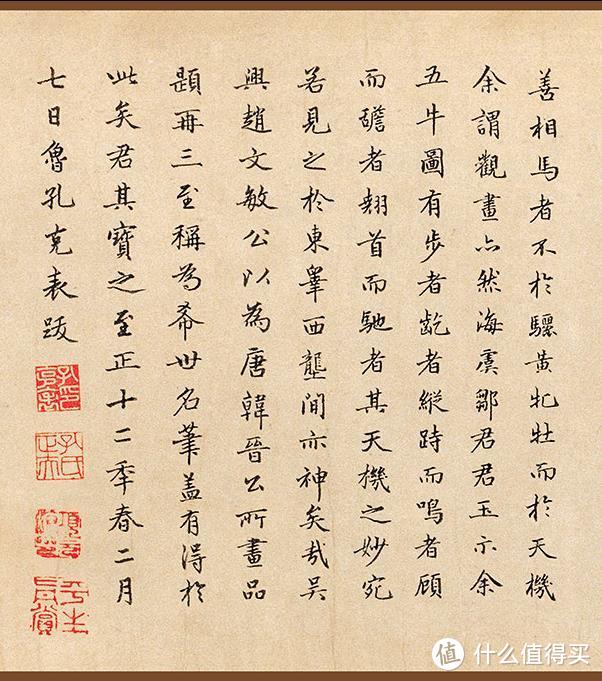 善相馬者不於驪黃牝牡而於天機
余謂觀畫亦然海虞鄒君君玉示余
五牛圖有步者齕者縱跱而鳴者顧
而者翹首而馳者其天機之妙宛
若見之於東皋西壟間亦神矣哉吳
興趙文敏公以為唐韓晉公所畫品
題再三至稱為希世名筆蓋有得於
此矣君其寶之至正十二年春二月
七日魯孔克表跋
孔氏正夫
平生真賞
值 什么值得买